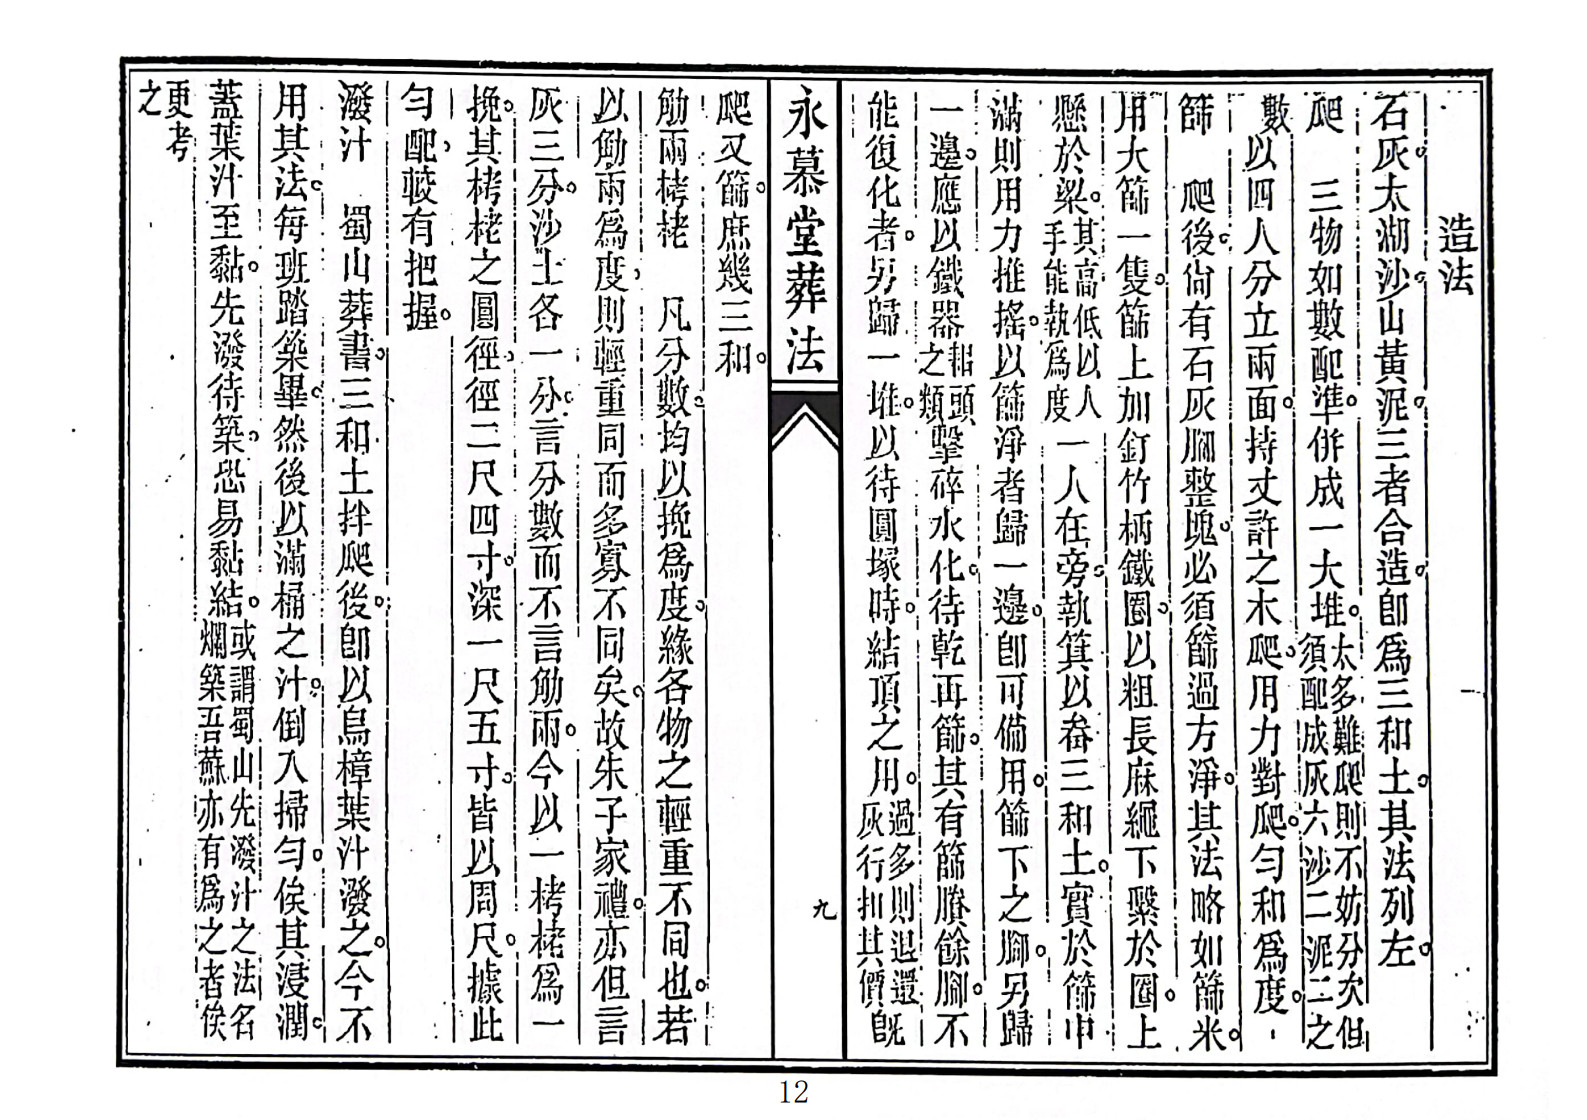 造法
石灰。太湖沙。山黃泥。三者合造。卽爲三和土。其法列左。
爬　三物如數配準。併成一大堆。太多難爬則不妨分次但須配成灰六沙二泥二之
數以四人分立兩面。持丈許之木爬。用力對爬。勻和爲度。
篩　爬後。尙有石灰腳整塊。必須篩過方淨。其法略如篩米。
用大篩一隻。篩上加釘竹柄鐵圈。以粗長麻繩下繫於圈。上
懸於梁。其高低以人手能執爲度一人在旁。執箕以畚三和土。實於篩中
滿則用力推搖。以篩淨者歸一邊。卽可備用。篩下之腳。另歸
一邊。應以鐵器耜頭之類擊碎水化。待乾再篩。其有篩賸餘腳。不
能復化者。另歸一堆。以待圓塚時。結頂之用。過多則退還灰行扣其價旣
永慕堂葬法
九
爬又篩。庶幾三和。
觔兩栲栳　凡分數。均以挽爲度。緣各物之輕重不同也。若
以觔兩爲度。則輕重同而多寡不同矣。故朱子家禮。亦但言
灰三分。沙土各一分。言分數而不言觔兩。今以一栲栳爲一
挽。其栲栳之圓徑。徑二尺四寸。深一尺五寸。皆以周尺。據此
勻配。較有把握。
潑汁　蜀山葬書。三和土拌爬後。卽以烏樟葉汁潑之。今不
用其法。每班踏築畢。然後以滿桶之汁。倒入掃勻。俟其浸潤。
蓋葉汁至黏。先潑待築。恐易黏結。或謂蜀山先潑汁之法名爛築吾蘇亦有爲之者俟
更考之
12